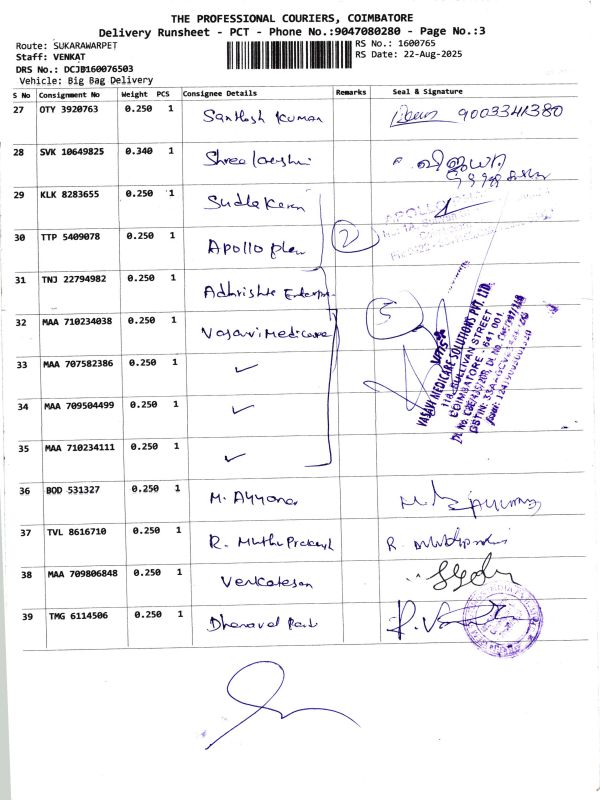 THE PROFESSIONAL COURIERS, COIMBATORE
Delivery Runsheet - PCT - Phone No.:9047080280 - Page No.:3
Route: SUKARAWARPET
RS No.: 1600765
Staff: VENKAT
RS Date: 22-Aug-2025
DRS No.: DCJB160076503
Vehicle: Big Bag Delivery
S No Consignment No Weight PCS Consignee Details Remarks Seal & Signature
27 OTY 3920763 0.250 1 Santhosh Kumar
28 SVK 10649825 0.340 1 Shree
29 KLK 8283655 0.250 1
2
30 TTP 5409078 0.250 1 Apollo
31 TNJ 22794982 0.250 1
5
32 MAA 710234038 0.250 1 Vasavi Medicare
33 MAA 707582386 0.250 1 ✓
34 MAA 709504499 0.250 1 ✓
35 MAA 710234111 0.250 1 ✓
VASAVI MEDICARE SOLUTIONS PVT. LTD.
SULLIVAN STREET
COIMBATORE - 641 001.
36 BOD 531327 0.250 1 M. Ayyonar
37 TVL 8616710 0.250 1 R. Muthu Prakash R.
38 MAA 709806848 0.250 1 Venkatesan
39 TMG 6114506 0.250 1